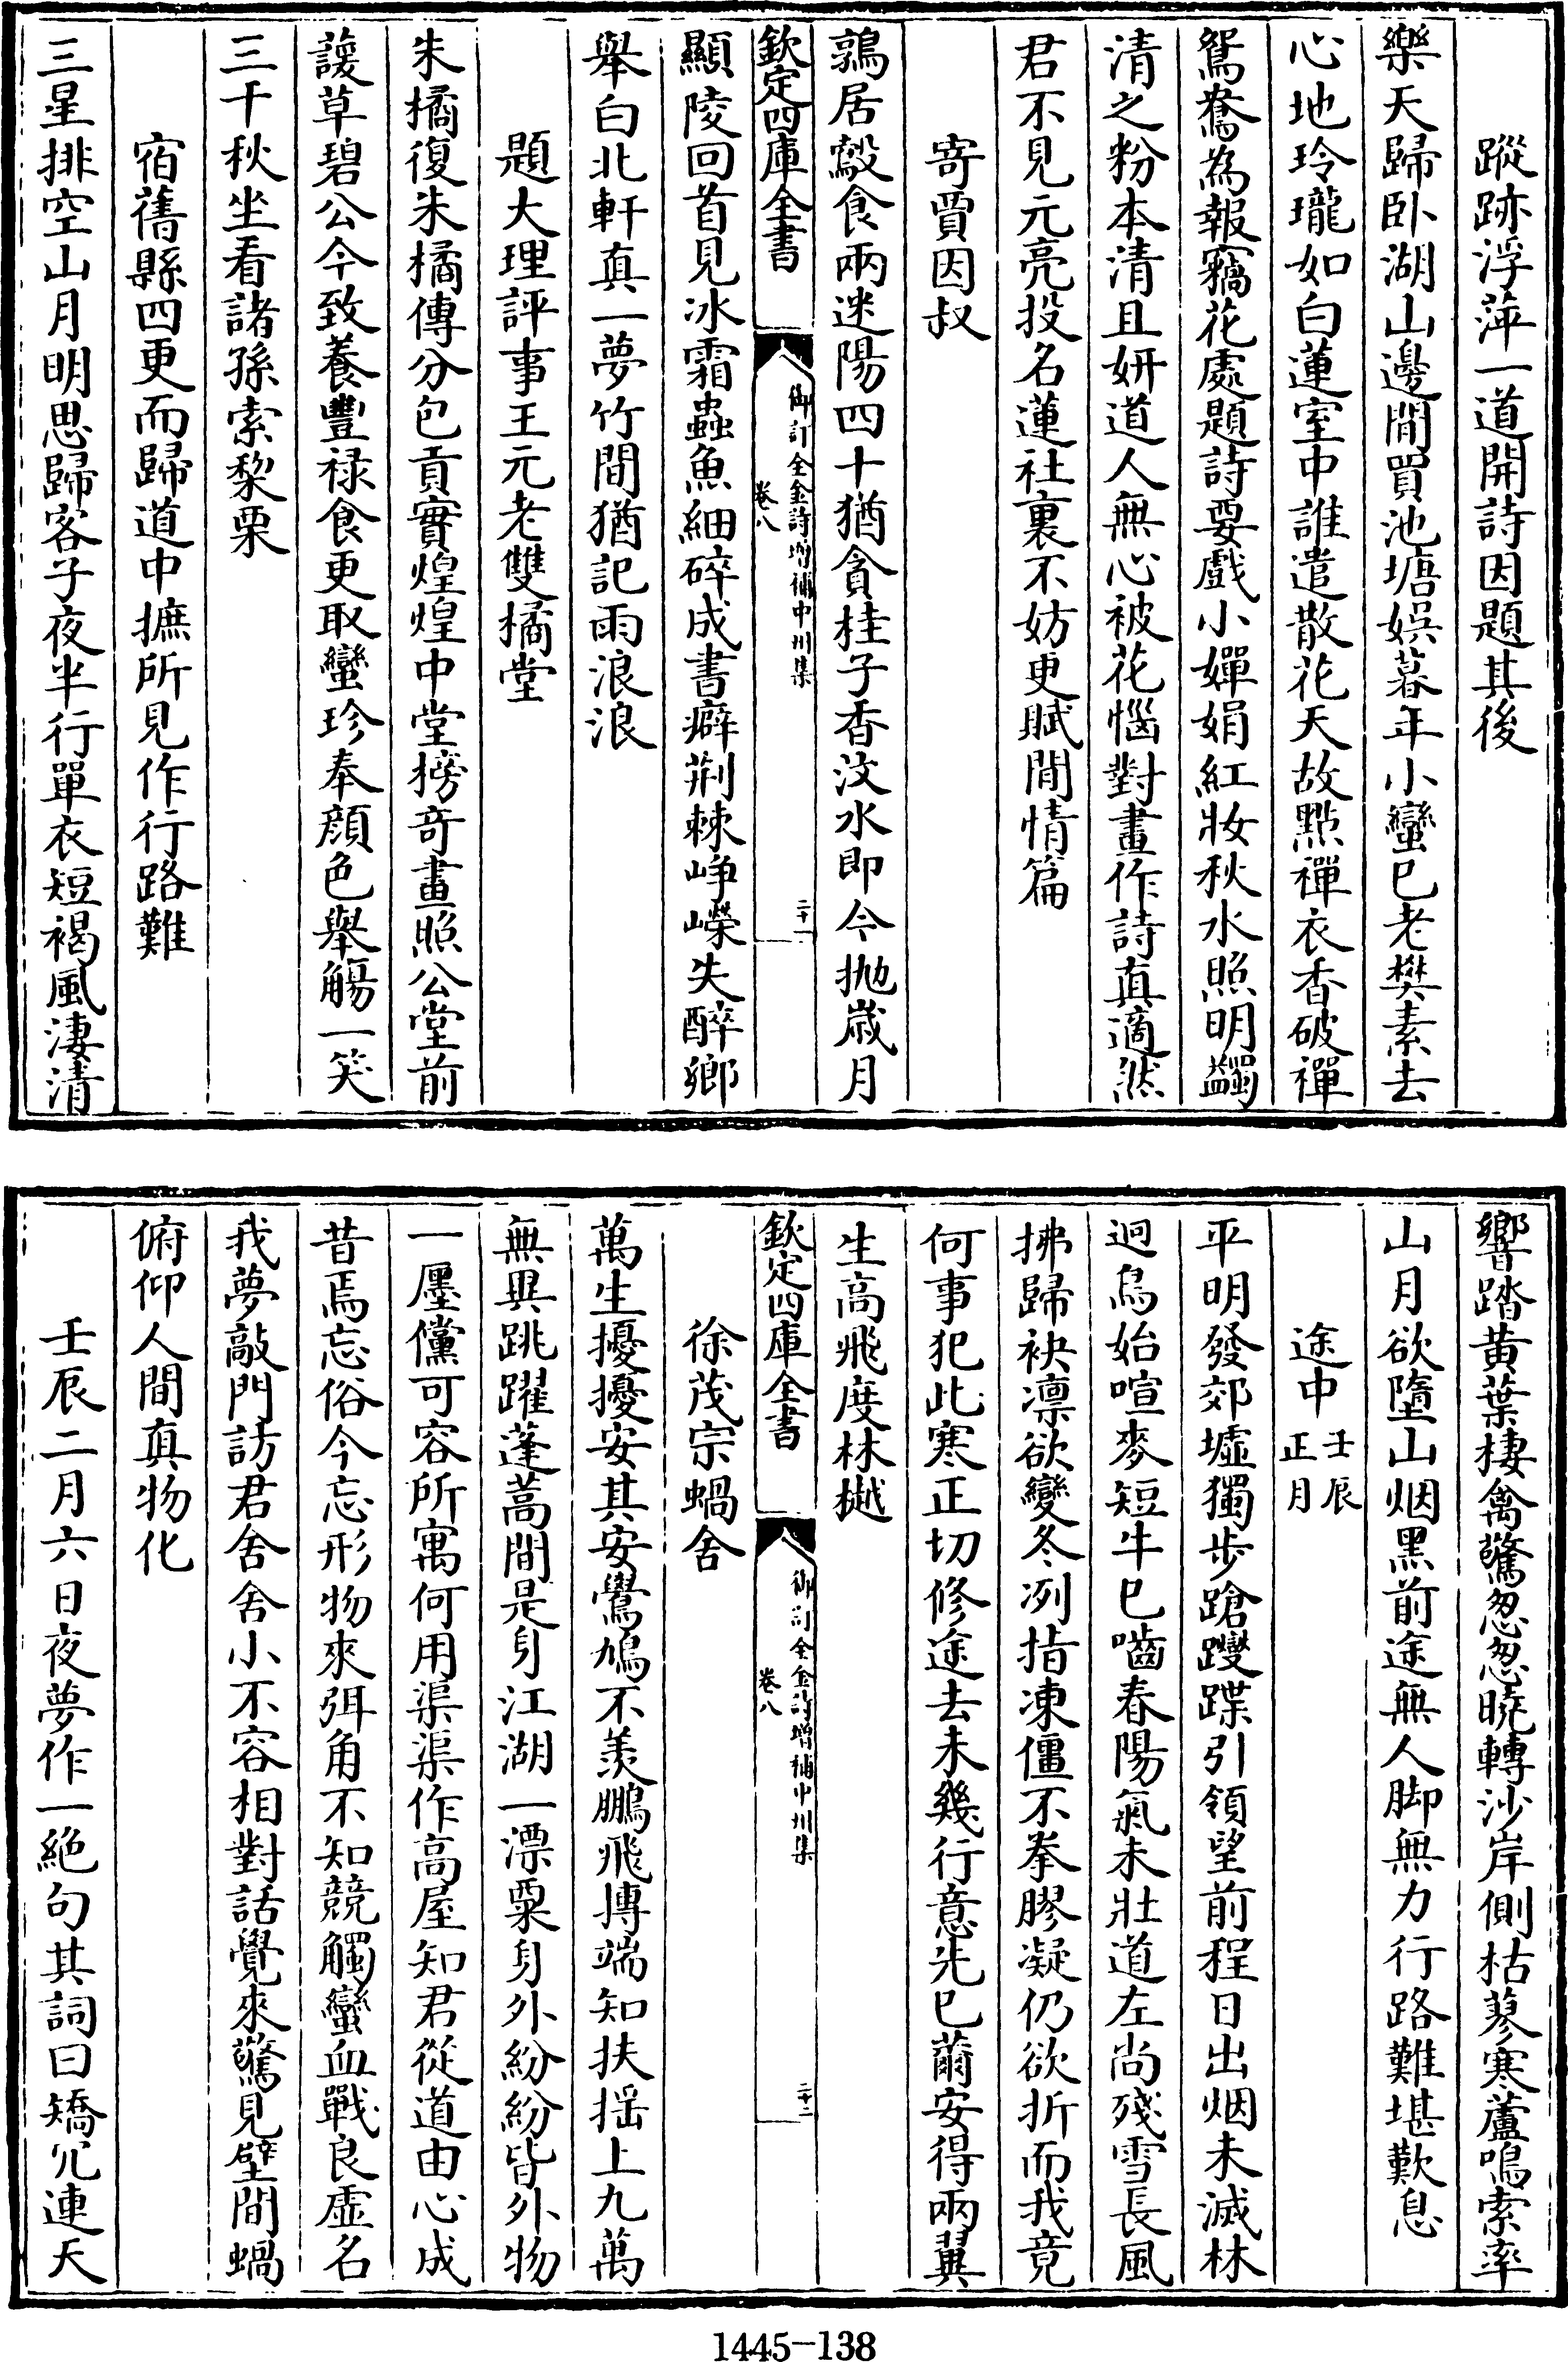 蹤跡浮萍一道開詩因題其後
樂天歸卧湖山邊閒買池塘娯暮年小蠻已老樊素去
心地玲瓏如白蓮室中誰遣散花天故㸃禪衣香破禪
鴛鴦為報竊花處題詩要戲小嬋娟紅妝秋水照明蠲
清之粉本清且妍道人無心被花惱對畫作詩真適然
君不見元亮投名蓮社裏不妨更賦閒情篇
寄賈因叔
鶉居鷇食兩迷陽四十猶貪桂子香汶水即今抛嵗月
欽定四庫全書
御訂全金詩增補中州集
卷八
二十一
顯陵回首見冰霜蟲魚細碎成書癖荆棘崢嶸失醉鄉
舉白北軒真一夢竹間猶記雨浪浪
題大理評事王元老雙橘堂
朱橘復朱橘傳分包貢實煌煌中堂榜竒畫照公堂前
諼草碧公今致養豐禄食更取蠻珍奉顔色舉觴一笑
三千秋坐看諸孫索棃栗
宿舊縣四更而歸道中摭所見作行路難
三星排空山月明思歸客子夜半行單衣短褐風淒清
響踏黄葉棲禽驚怱怱曉轉沙岸側枯蓼寒蘆鳴索率
山月欲墮山烟黑前途無人脚無力行路難堪歎息
途中壬辰正月
平明發郊墟獨步蹌躞蹀引領望前程日出烟未滅林
迥烏始喧麥短牛已嚙春陽氣未壯道左尚殘雪長風
拂歸袂凛欲變冬冽指凍僵不拳膠凝仍欲折而我竟
何事犯此寒正切修途去未幾行意先已薾安得兩翼
生高飛度林樾
欽定四庫全書
御訂全金詩增補中州集
卷八
二十二
徐茂宗蝸舍
萬生擾擾安其安鷽鳩不羡鵬飛摶端知扶摇上九萬
無異跳躍蓬蒿間是身江湖一漂粟身外紛紛皆外物
一㕓儻可容所寓何用渠渠作高屋知君從道由心成
昔焉忘俗今忘形物來弭角不知競觸蠻血戰良虚名
我夢敲門訪君舍舍小不容相對話覺來驚見壁間蝸
俯仰人間真物化
壬辰二月六日夜夢作一絶句其詞曰矯宂連天
1445-138